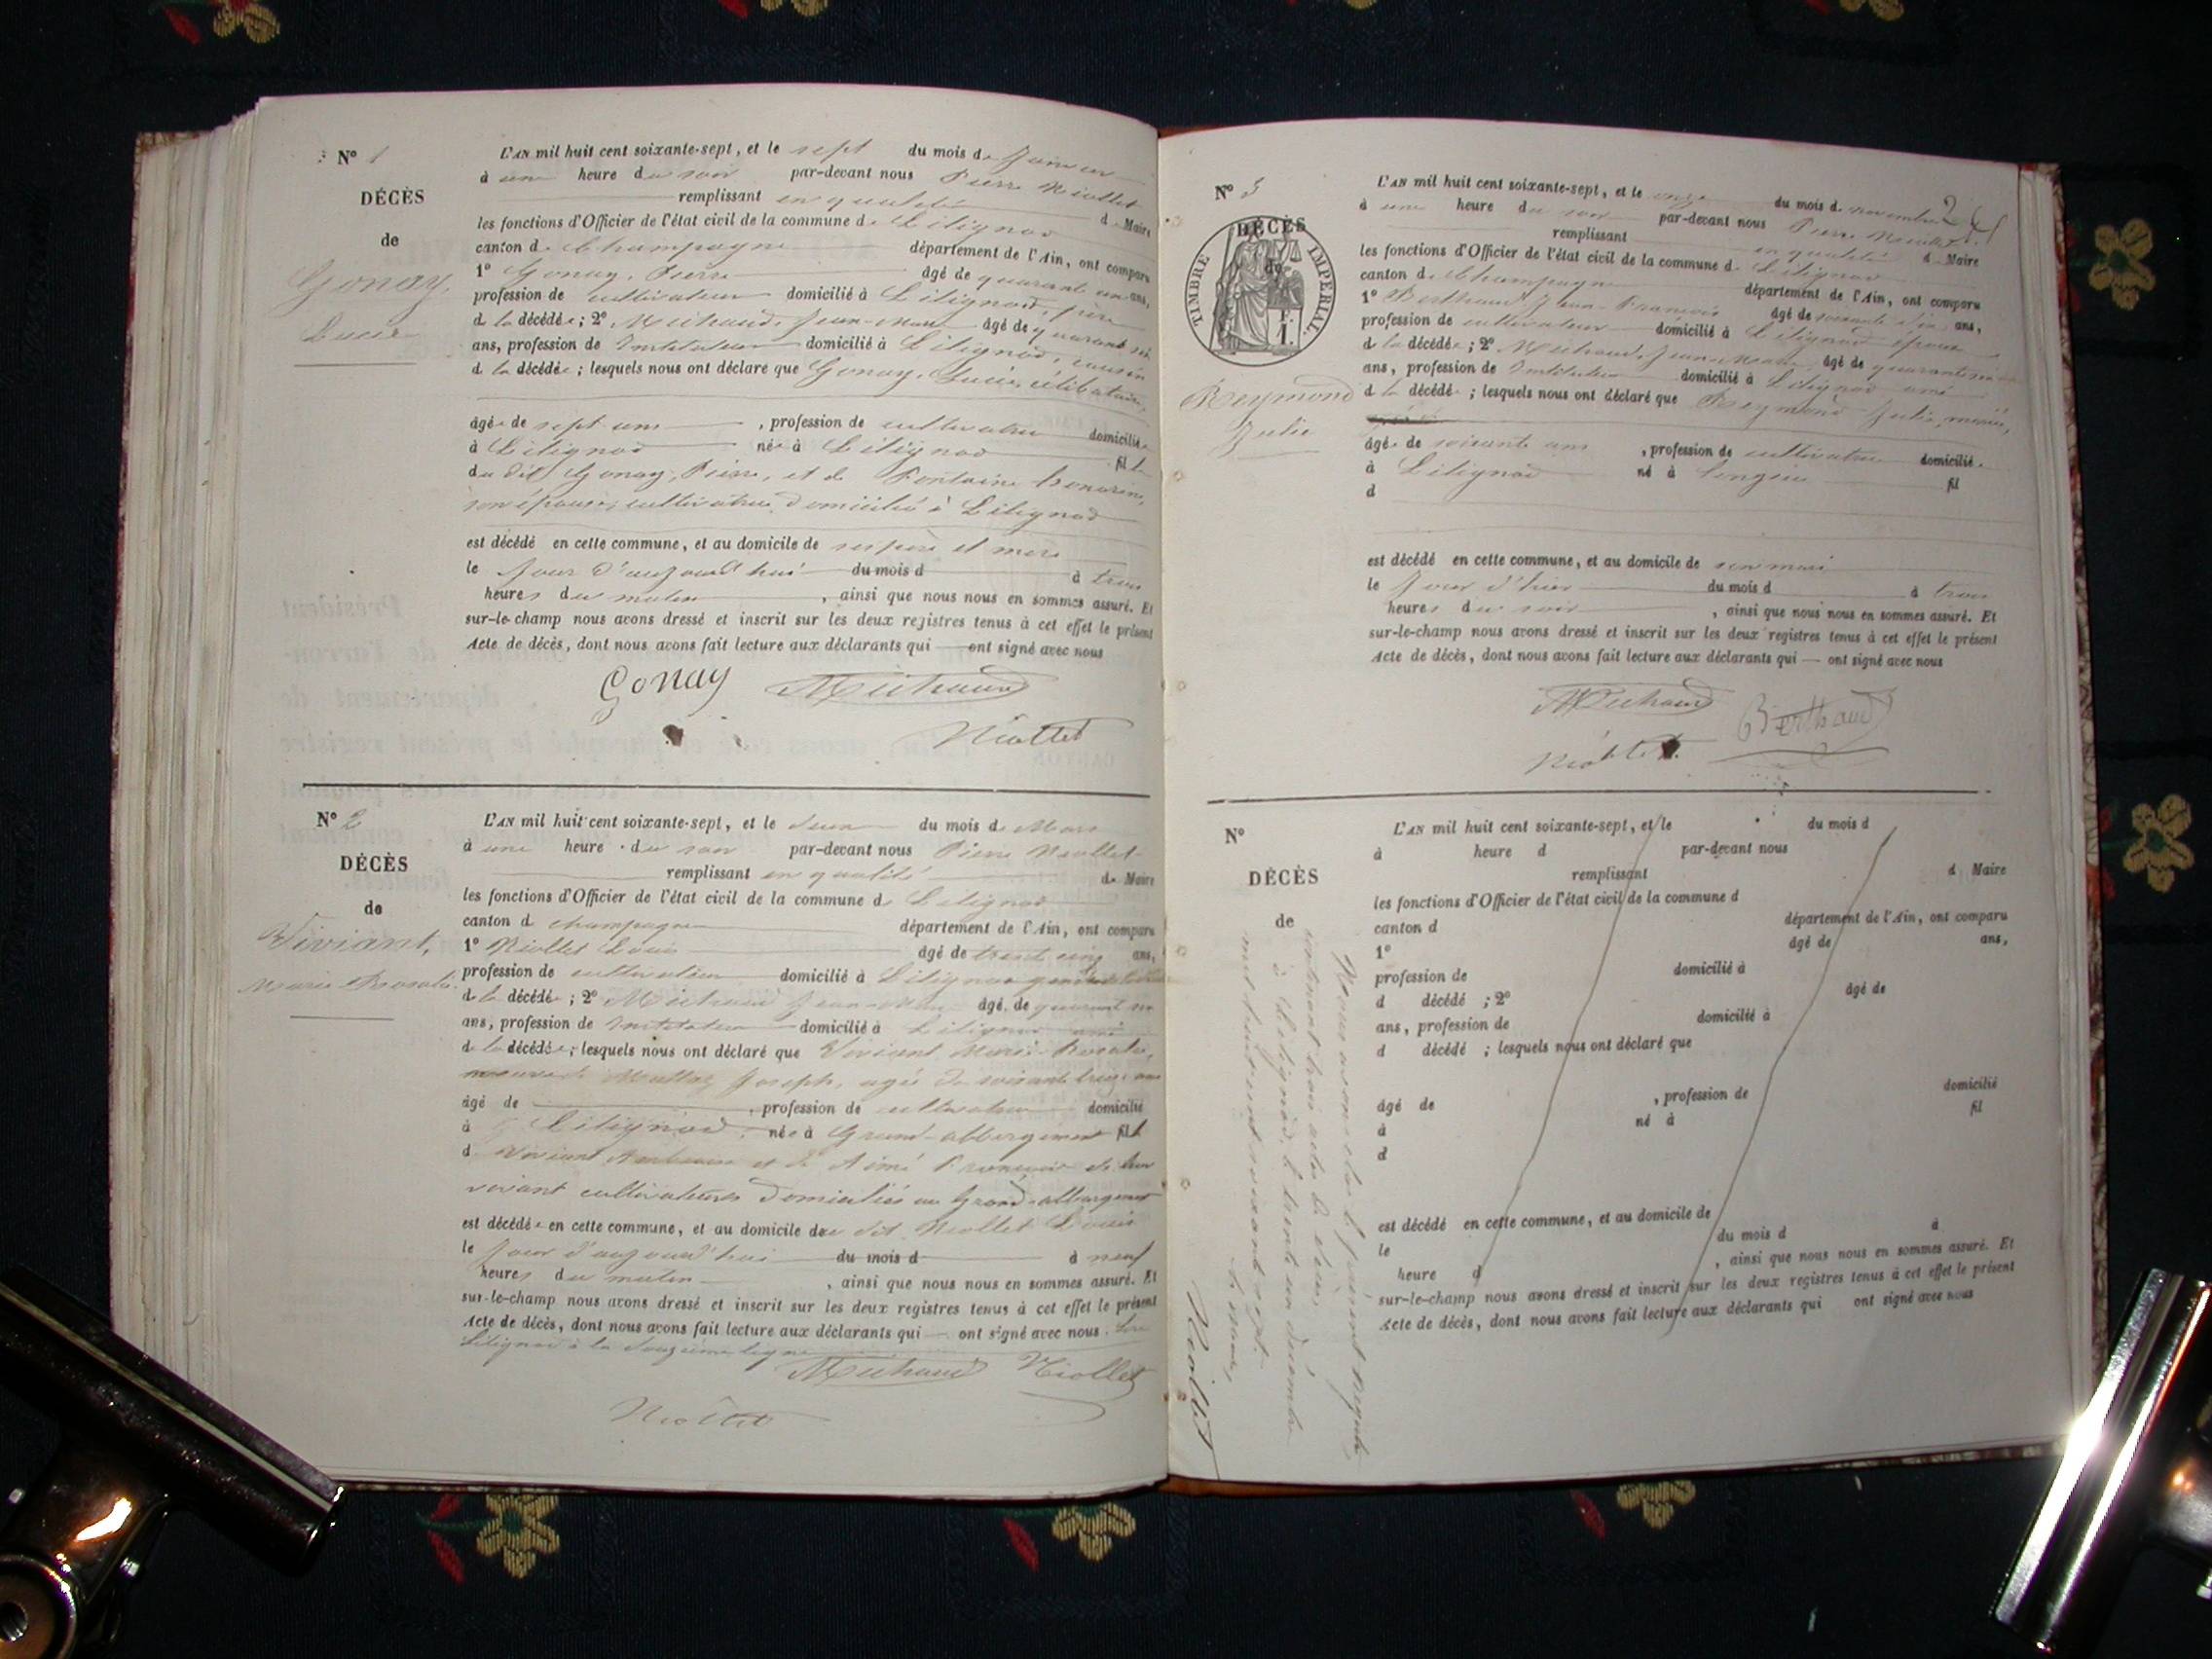 N° 1
DÉCÈS
de
Gonay,
Lucie
L'AN mil huit cent soixante-sept, et le sept du mois de Janvier
à une heure du soir par-devant nous Pierre Niollet
remplissant en qualité de Maire
les fonctions d'Officier de l'état civil de la commune de Lilignod
canton de Champagne département de l'Ain, ont comparu
1° Gonay, Pierre âgé de quarante un ans,
profession de cultivateur domicilié à Lilignod, père
de la décédée; 2° Michaud, Jean-Marie âgé de quarante six
ans, profession de Instituteur domicilié à Lilignod, cousin
de la décédée; lesquels nous ont déclaré que Gonay, Lucie, célibataire,
âgée de sept ans, profession de cultivatrice domiciliée
à Lilignod née à Lilignod fille
du dit Gonay, Pierre, et de Fontaine
son épouse, cultivateurs, domiciliés à Lilignod
est décédé en cette commune, et au domicile de ses père et mère
le jour d'aujourd'hui du mois d à trois
heures du matin, ainsi que nous nous en sommes assuré. Et
sur-le-champ nous avons dressé et inscrit sur les deux registres tenus à cet effet le présent
Acte de décès, dont nous avons fait lecture aux déclarants qui ont signé avec nous
Gonay Michaud
Niollet
N° 2
DÉCÈS
de
Viviant,
Marie Rosalie
L'AN mil huit cent soixante-sept, et le deux du mois de Mars
à une heure du soir par-devant nous Pierre Niollet
remplissant en qualité de Maire
les fonctions d'Officier de l'état civil de la commune de Lilignod
canton de Champagne département de l'Ain, ont comparu
1° Niollet Louis âgé de trente cinq ans,
profession de cultivateur domicilié à Lilignod
de la décédée; 2° Michaud Jean-Marie âgé de quarante six
ans, profession de Instituteur domicilié à Lilignod ami
de la décédée; lesquels nous ont déclaré que Viviant Marie-Rosalie,
Joseph, agée de soixante treize ans
âgé de, profession de cultivatrice domicilié
à Lilignod, née à Grand-abbergement fille
d Viviant et de Aimé Françoise de leur
vivant cultivateurs domiciliés au Grand-abbergement
est décédée en cette commune, et au domicile du dit Niollet Louis
le jour d'aujourd'hui du mois d à neuf
heures du matin, ainsi que nous nous en sommes assuré. Et
sur-le-champ nous avons dressé et inscrit sur les deux registres tenus à cet effet le présent
Acte de décès, dont nous avons fait lecture aux déclarants qui ont signé avec nous.
Lilignod à la douzième ligne
Michaud Niollet
Niollet
N° 3
DÉCÈS
de
TIMBRE IMPÉRIAL
Reymond
Julie
L'AN mil huit cent soixante-sept, et le onze du mois de novembre
à une heure du soir par-devant nous Pierre Niollet
remplissant en qualité de Maire
les fonctions d'Officier de l'état civil de la commune de Lilignod
canton de Champagne département de l'Ain, ont comparu
1° Berthaud Jean-François âgé de soixante ans,
profession de cultivateur domicilié à Lilignod époux
de la décédée; 2° Michaud, Jean-Marie, âgé de quarante six
ans, profession de Instituteur domicilié à Lilignod ami
de la décédée; lesquels nous ont déclaré que Reymond Julie, mariée,
âgée de soixante ans, profession de cultivatrice domiciliée
à Lilignod né à Songieu fil
d
est décédé en cette commune, et au domicile de son mari
le jour d'hier du mois d à trois
heures du soir, ainsi que nous nous en sommes assuré. Et
sur-le-champ nous avons dressé et inscrit sur les deux registres tenus à cet effet le présent
Acte de décès, dont nous avons fait lecture aux déclarants qui ont signé avec nous
Michaud Berthaud
Niollet
N°
DÉCÈS
de
L'AN mil huit cent soixante-sept, et le du mois d
à heure d par-devant nous
remplissant d Maire
les fonctions d'Officier de l'état civil de la commune d
canton d département de l'Ain, ont comparu
1° âgé de ans,
profession de domicilié à
d décédé ; 2° âgé de
ans, profession de domicilié à
d décédé ; lesquels nous ont déclaré que
âgé de, profession de domicilié
à né à fil
d
est décédé en cette commune, et au domicile de
le du mois d à
heure d, ainsi que nous nous en sommes assuré. Et
sur-le-champ nous avons dressé et inscrit sur les deux registres tenus à cet effet le présent
Acte de décès, dont nous avons fait lecture aux déclarants qui ont signé avec nous
Nous avons clos le présent registre
contenant trois actes de décès,
à Lilignod, le trente un décembre
mil huit cent soixante sept.
le maire,
Niollet